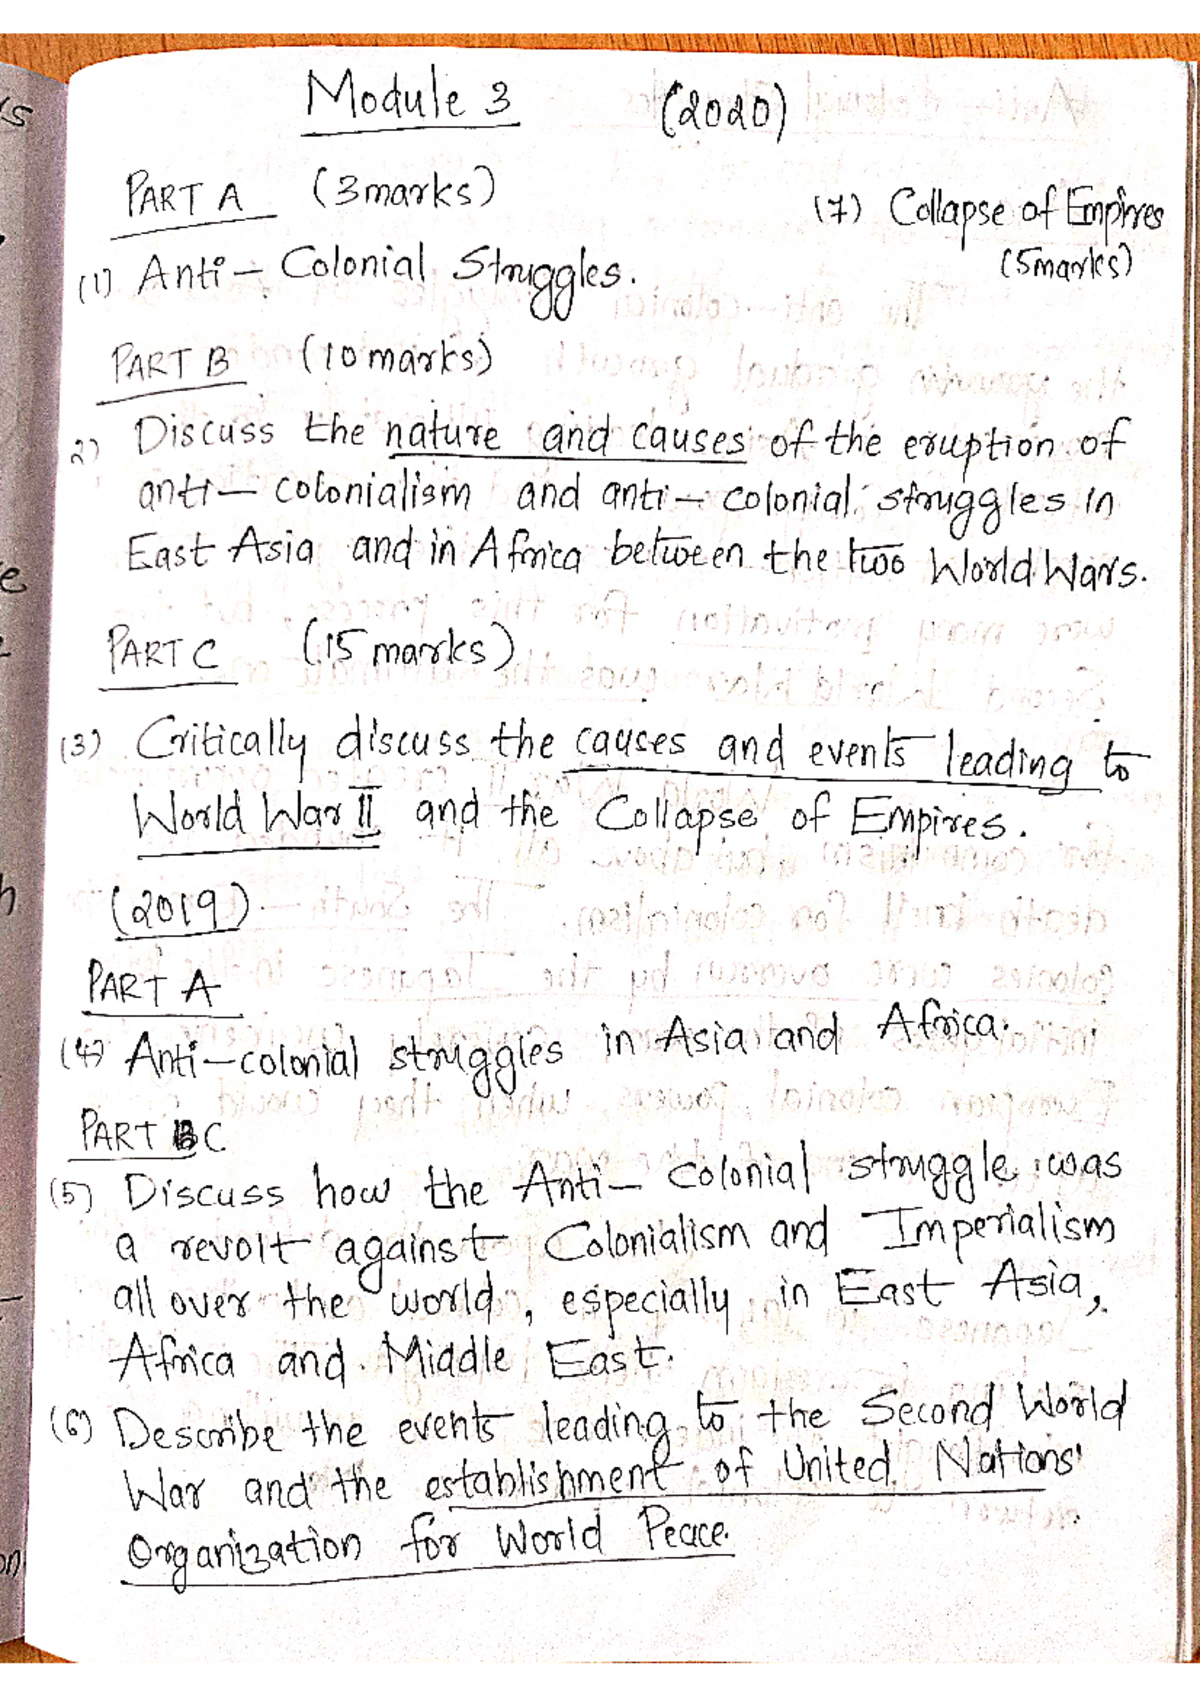 Module 3 (2020)
PART A (3 marks)
(7) Collapse of Empires
(5marks)
(1) Anti - Colonial Struggles.
PART B (10 marks)
2) Discuss the nature and causes of the eruption of
anti - colonialism and anti - colonial struggles in
East Asia and in Africa between the two World Wars.
PART C (15 marks)
(3) Critically discuss the causes and events leading to
World War II and the Collapse of Empires.
(2019)
PART A
(4) Anti-colonial struggles in Asia and Africa.
PART C
(5) Discuss how the Anti - colonial struggle was
a revolt against Colonialism and Imperialism
all over the world, especially in East Asia,
Africa and Middle East.
(6) Describe the events leading to the Second World
War and the establishment of United Nations'
Organization for World Peace.